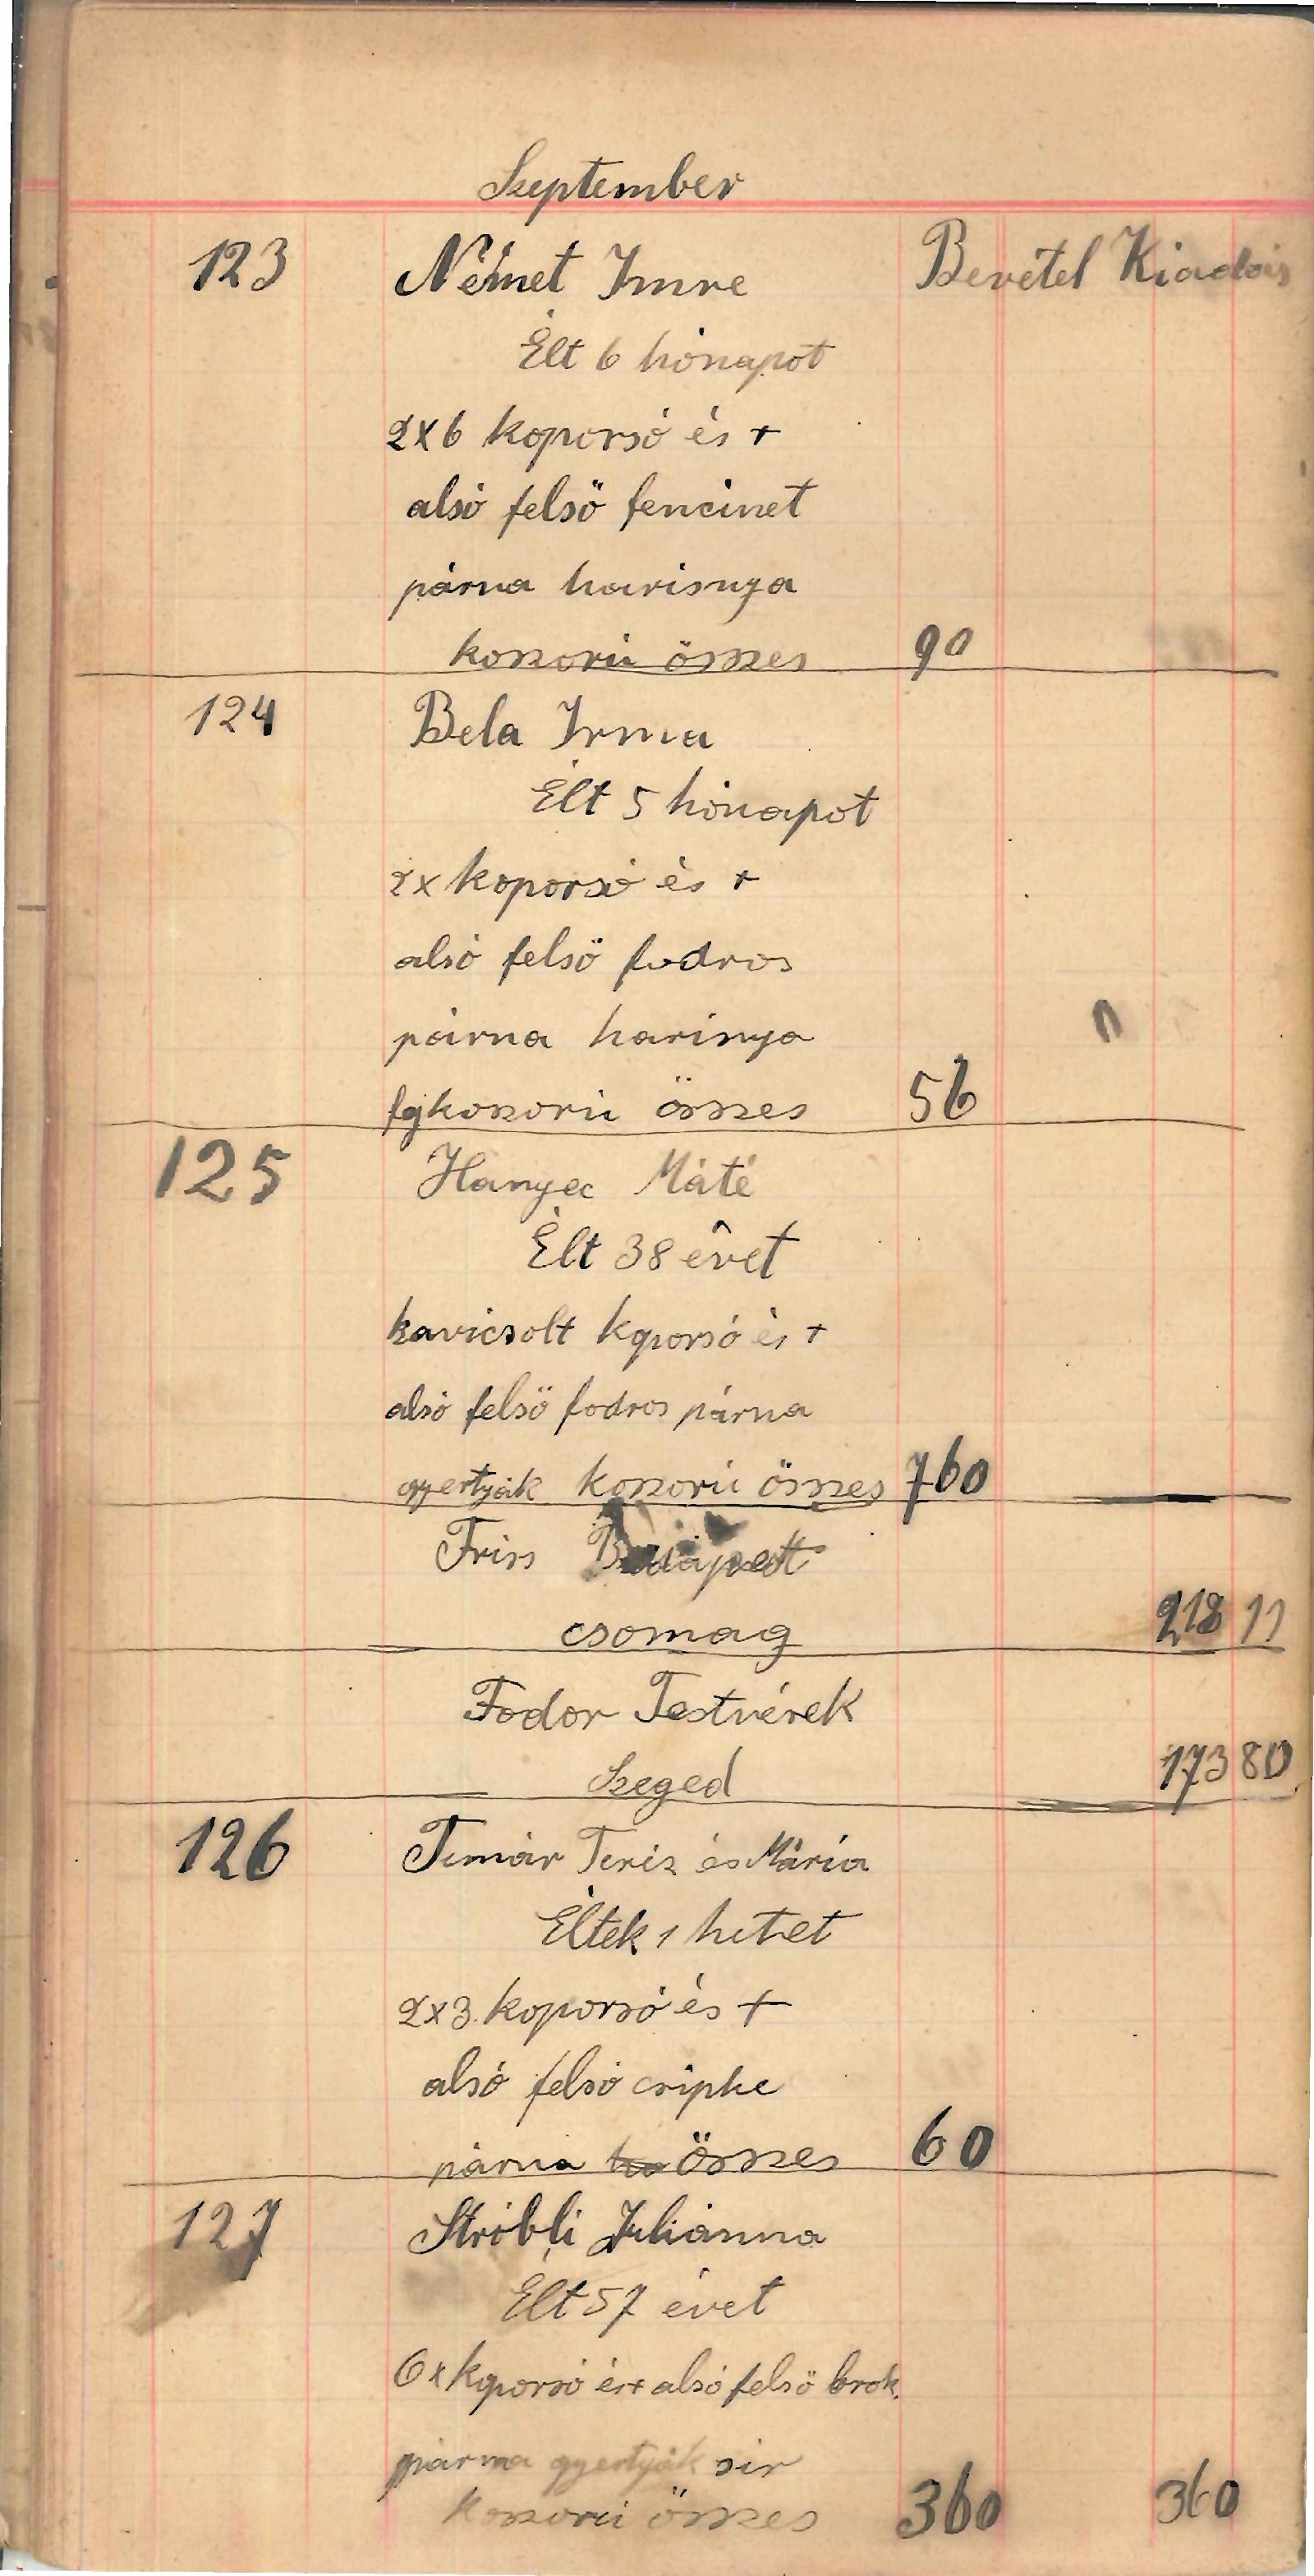 September
123 Német Imre Bevétel Kiadás
Élt 6 hónapot
2x6 koporsó és +
alsó felső fencinet
párna harisnya
koszorú összes 90
124 Bela Irma
Élt 5 hónapot
2x koporsó és +
alsó felső fodros
párna harisnya
fejkoszorú összes 56
125 Hanyec Máté
Élt 38 évet
kavicsolt koporsó és +
alsó felső fodros párna
gyertyák koszorú összes 760
Friss Budapest
csomag 218 11
Fodor Testvérek
Szeged 173 80
126 Timár Teréz és Mária
Éltek 1 hetet
2x3 koporsó és +
alsó felső csipke
párna összes 60
127 Stróbli Juliánna
Élt 57 évet
6x koporsó és + alsó felső brok.
párna gyertyák sír
koszorú összes 360 360